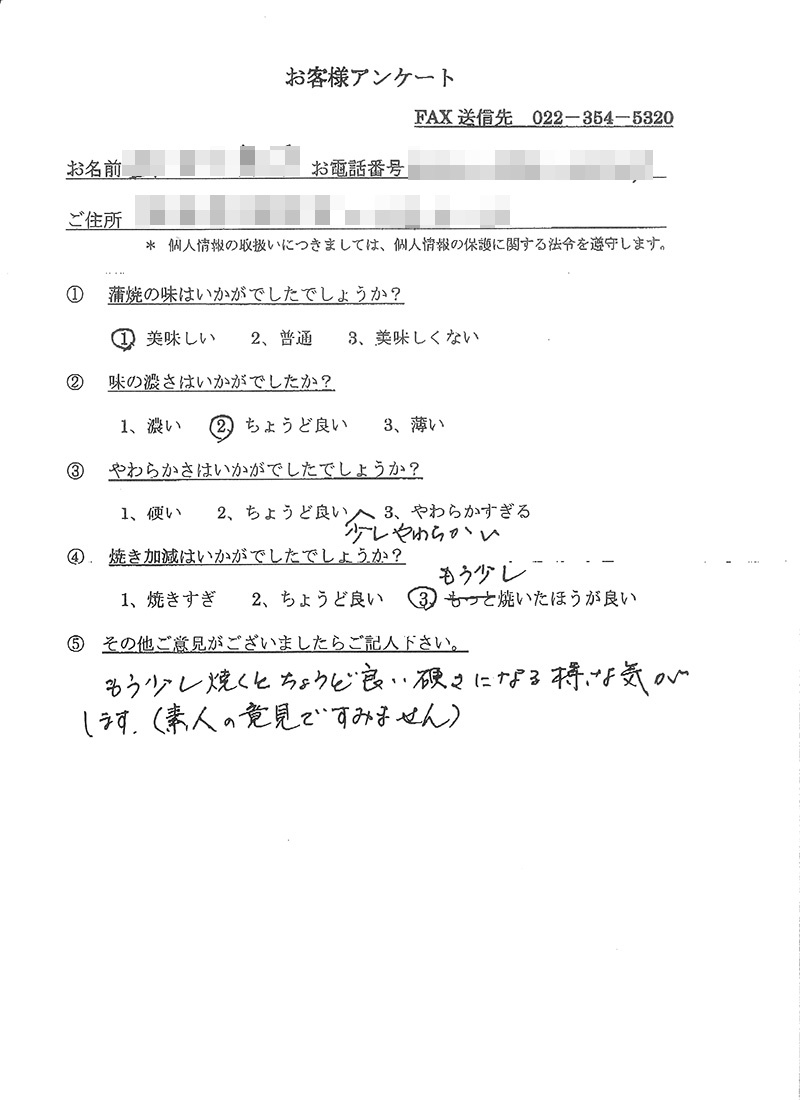 お客様アンケート
FAX 送信先　022－354－5320
お名前　お電話番号
ご住所
＊ 個人情報の取扱いにつきましては、個人情報の保護に関する法令を遵守します。
① 蒲焼の味はいかがでしたでしょうか？
1、美味しい　2、普通　3、美味しくない
② 味の濃さはいかがでしたか？
1、濃い　2、ちょうど良い　3、薄い
③ やわらかさはいかがでしたでしょうか？
1、硬い　2、ちょうど良い　3、やわらかすぎる
少しやわらかい
④ 焼き加減はいかがでしたでしょうか？
もう少し
1、焼きすぎ　2、ちょうど良い　3、もっと焼いたほうが良い
⑤ その他ご意見がございましたらご記入下さい。
もう少し焼くとちょうど良い硬さになる様な気が
します.（素人の意見ですみません）